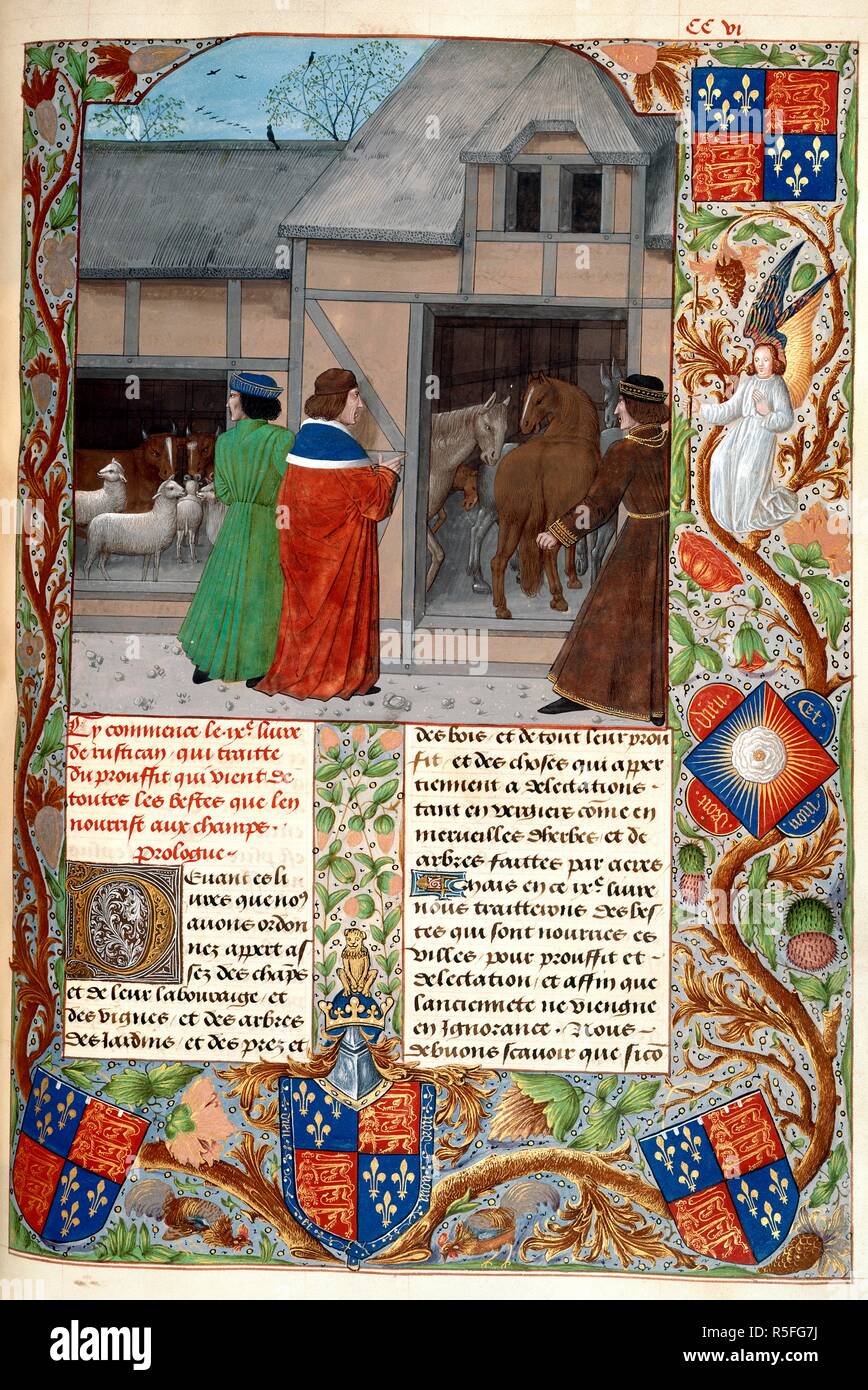 CC vi
Cy commence le ixe livre
de rustican, qui traitte
du prouffit qui vient de
toutes les bestes que len
nourrist aux champs.
Prologue
Devant ces li
vres que nos
avons ordon
nez appert as
sez des chaps
et de leur labouraige, et
des vignes, et des arbres
des Jardins, et des prez et
des bois, et de tout leur prou
fit, et des choses qui apper
tiennent a delectations
tant en vergiers come en
merveilles dherbes, et de
arbres faittes par
Mais en ce ixe livre
nous traitterons des bes
tes qui sont nourries es
villes, pour prouffit et
delectation, et affin que
lanciennete ne viengne
en Ignorance. Nous
devons scavoir que sico
Dieu
Et
mon
Droit
Dieu
Et
mon
alamy
Image ID: R5FG7J
www.alamy.com